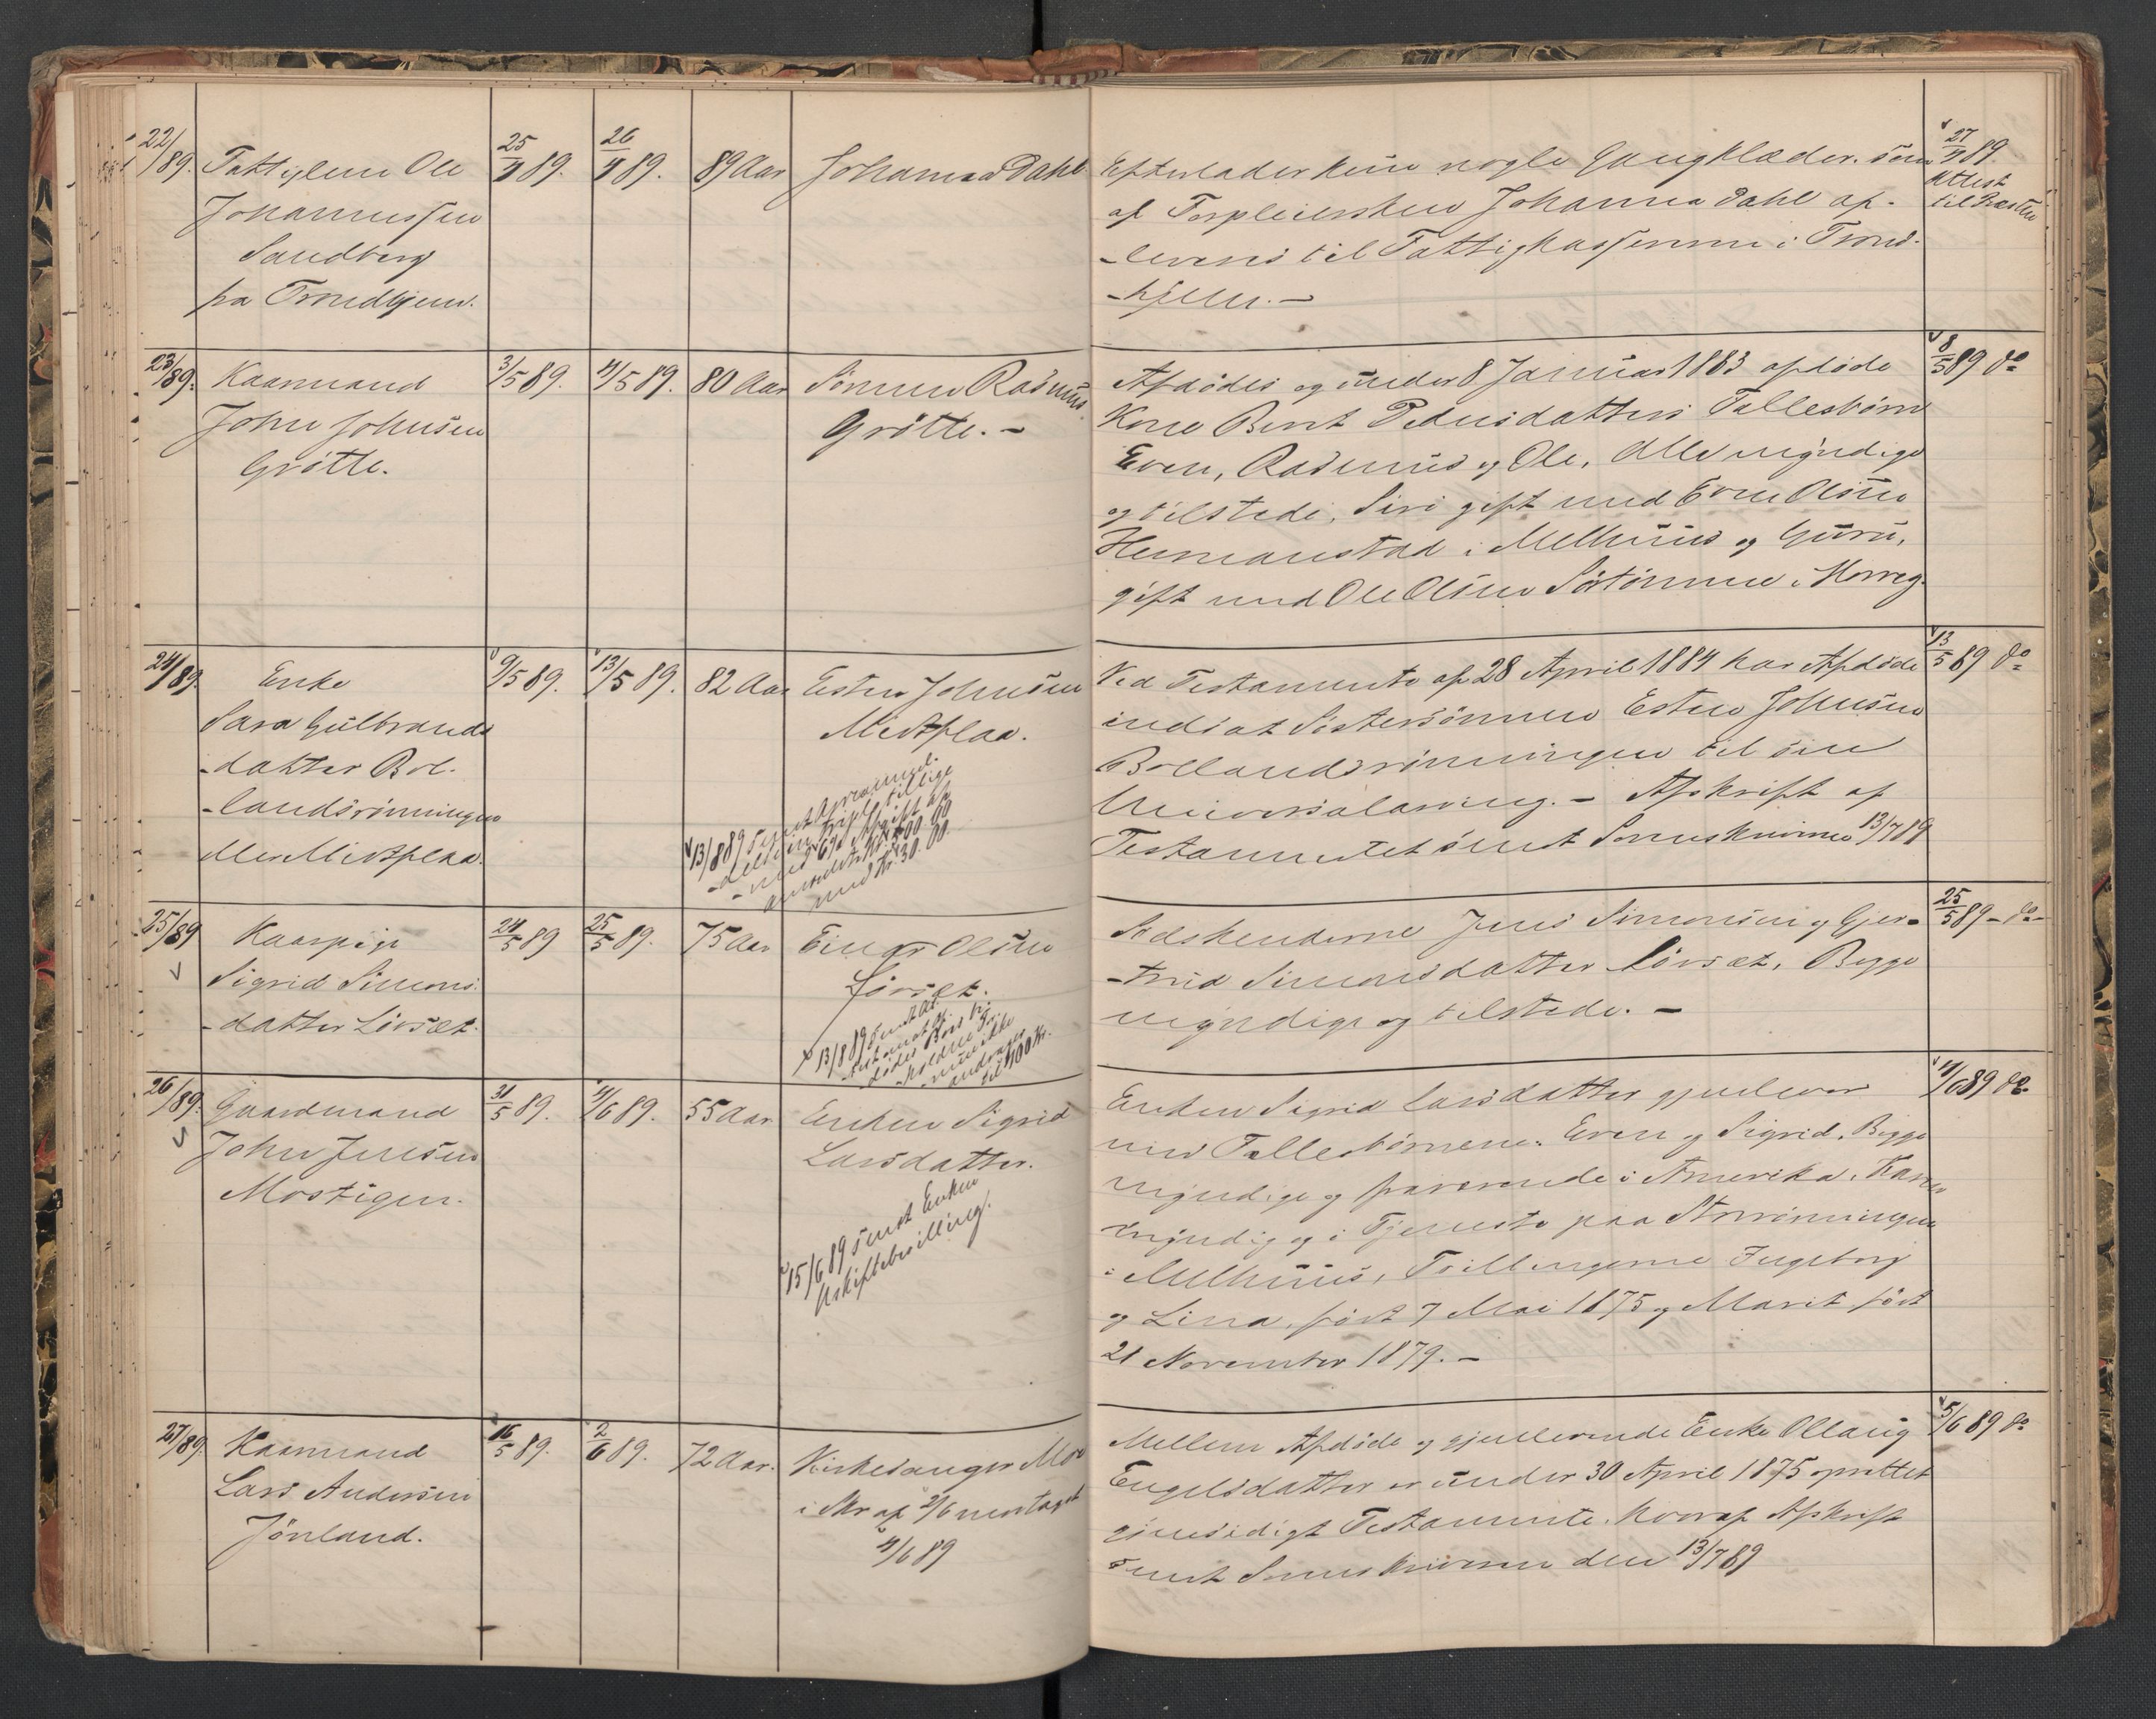 22/89. Fattiglem Ole
Johannessen
Sandberg
fra Trondhjem.
25/4 89.
26/4 89.
89 Aar
Johanna Dahl
Efterlader kun nogle Gangklæder. som
af Forpleiersken Johanna Dahl af-
-leveres til Fattigkasserne i Trond-
-hjem. -
27/4 89.
Attest
til Præsten
23/89. Kaarmand
John Johnsen
Grøtte.
3/5 89.
4/5 89.
80 Aar
Sønnen Rasmus
Grøtte. -
Afdødes og under 8 Januar 1883 afdøde
Kone Berit Pedersdatters Fællesbørn
Even, Rasmus og Ole, Alle myndige
og tilstede, Siri gift med Even Olsen
Hermanstad i Melhuus og Guru,
gift med Ole Olsen i Horreg.
8/5 89 do
24/89. Enke
Sara Gulbrands
-datter Bol-
-landsrønningen
eller Midtplaa.
9/5 89.
13/5 89.
82 Aar
Esten Johnsen
Midtplaa.
13/8 89 sendt
med 6% Afgift af
Kr. 500.00
med Kr. 30.00
Ved Testamente af 28 April 1884 har Afdøde
indsat Søstersønnen Esten Johnsen
Bollandsrønningen til sin
Universalarving. - Afskrift af
Testamentet sendt Sorenskriveren 13/7 89
13/5 89 do
25/89 Kaarpige
Sigrid Simons-
-datter Løvset.
24/5 89
25/5 89.
75 Aar
Einar Olsen
Løvset.
13/8 89 sendt At-
-test om at Af-
dødes Bo
ikke
andrager
til 400 Kr.
Sødskenderne Jens Simonsen og Gjer-
-trud Simonsdatter Løvset, Begge
myndige og tilstede. -
25/5 89 - do -
26/89. Gaardmand
John Jensen
Mostigen.
31/5 89.
4/6 89.
55 Aar
Enken Sigrid
Larsdatter.
15/6 89 sendt Enken
Uskiftebevilling.
Enken Sigrid Larsdatter gjenlever
med Fællesbørnene: Even og Sigrid, Begge
myndige og fraværende i Amerika, Karen
myndig og i Tjeneste paa
i Melhuus, Tvillingerne Ingeborg
og Lina, født 7 Mai 1875 og Marit født
21 November 1879. -
4/6 89 do
27/89. Kaarmand
Lars Andersen
Jønland.
16/5 89.
2/6 89.
72 Aar.
Kirkesanger Moe
i Skr af 2/6 modtaget
4/6 89
Mellem Afdøde og gjenlevende Enke Ollaug
Engelsdatter er under 30 April 1875 oprettet
gjensidigt Testamente, hvoraf Afskrift
sendt Sorenskriveren den 13/7 89
5/6 89 do